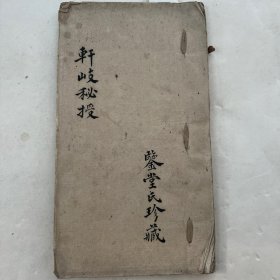 軒岐秘授
鑒堂氏珍藏